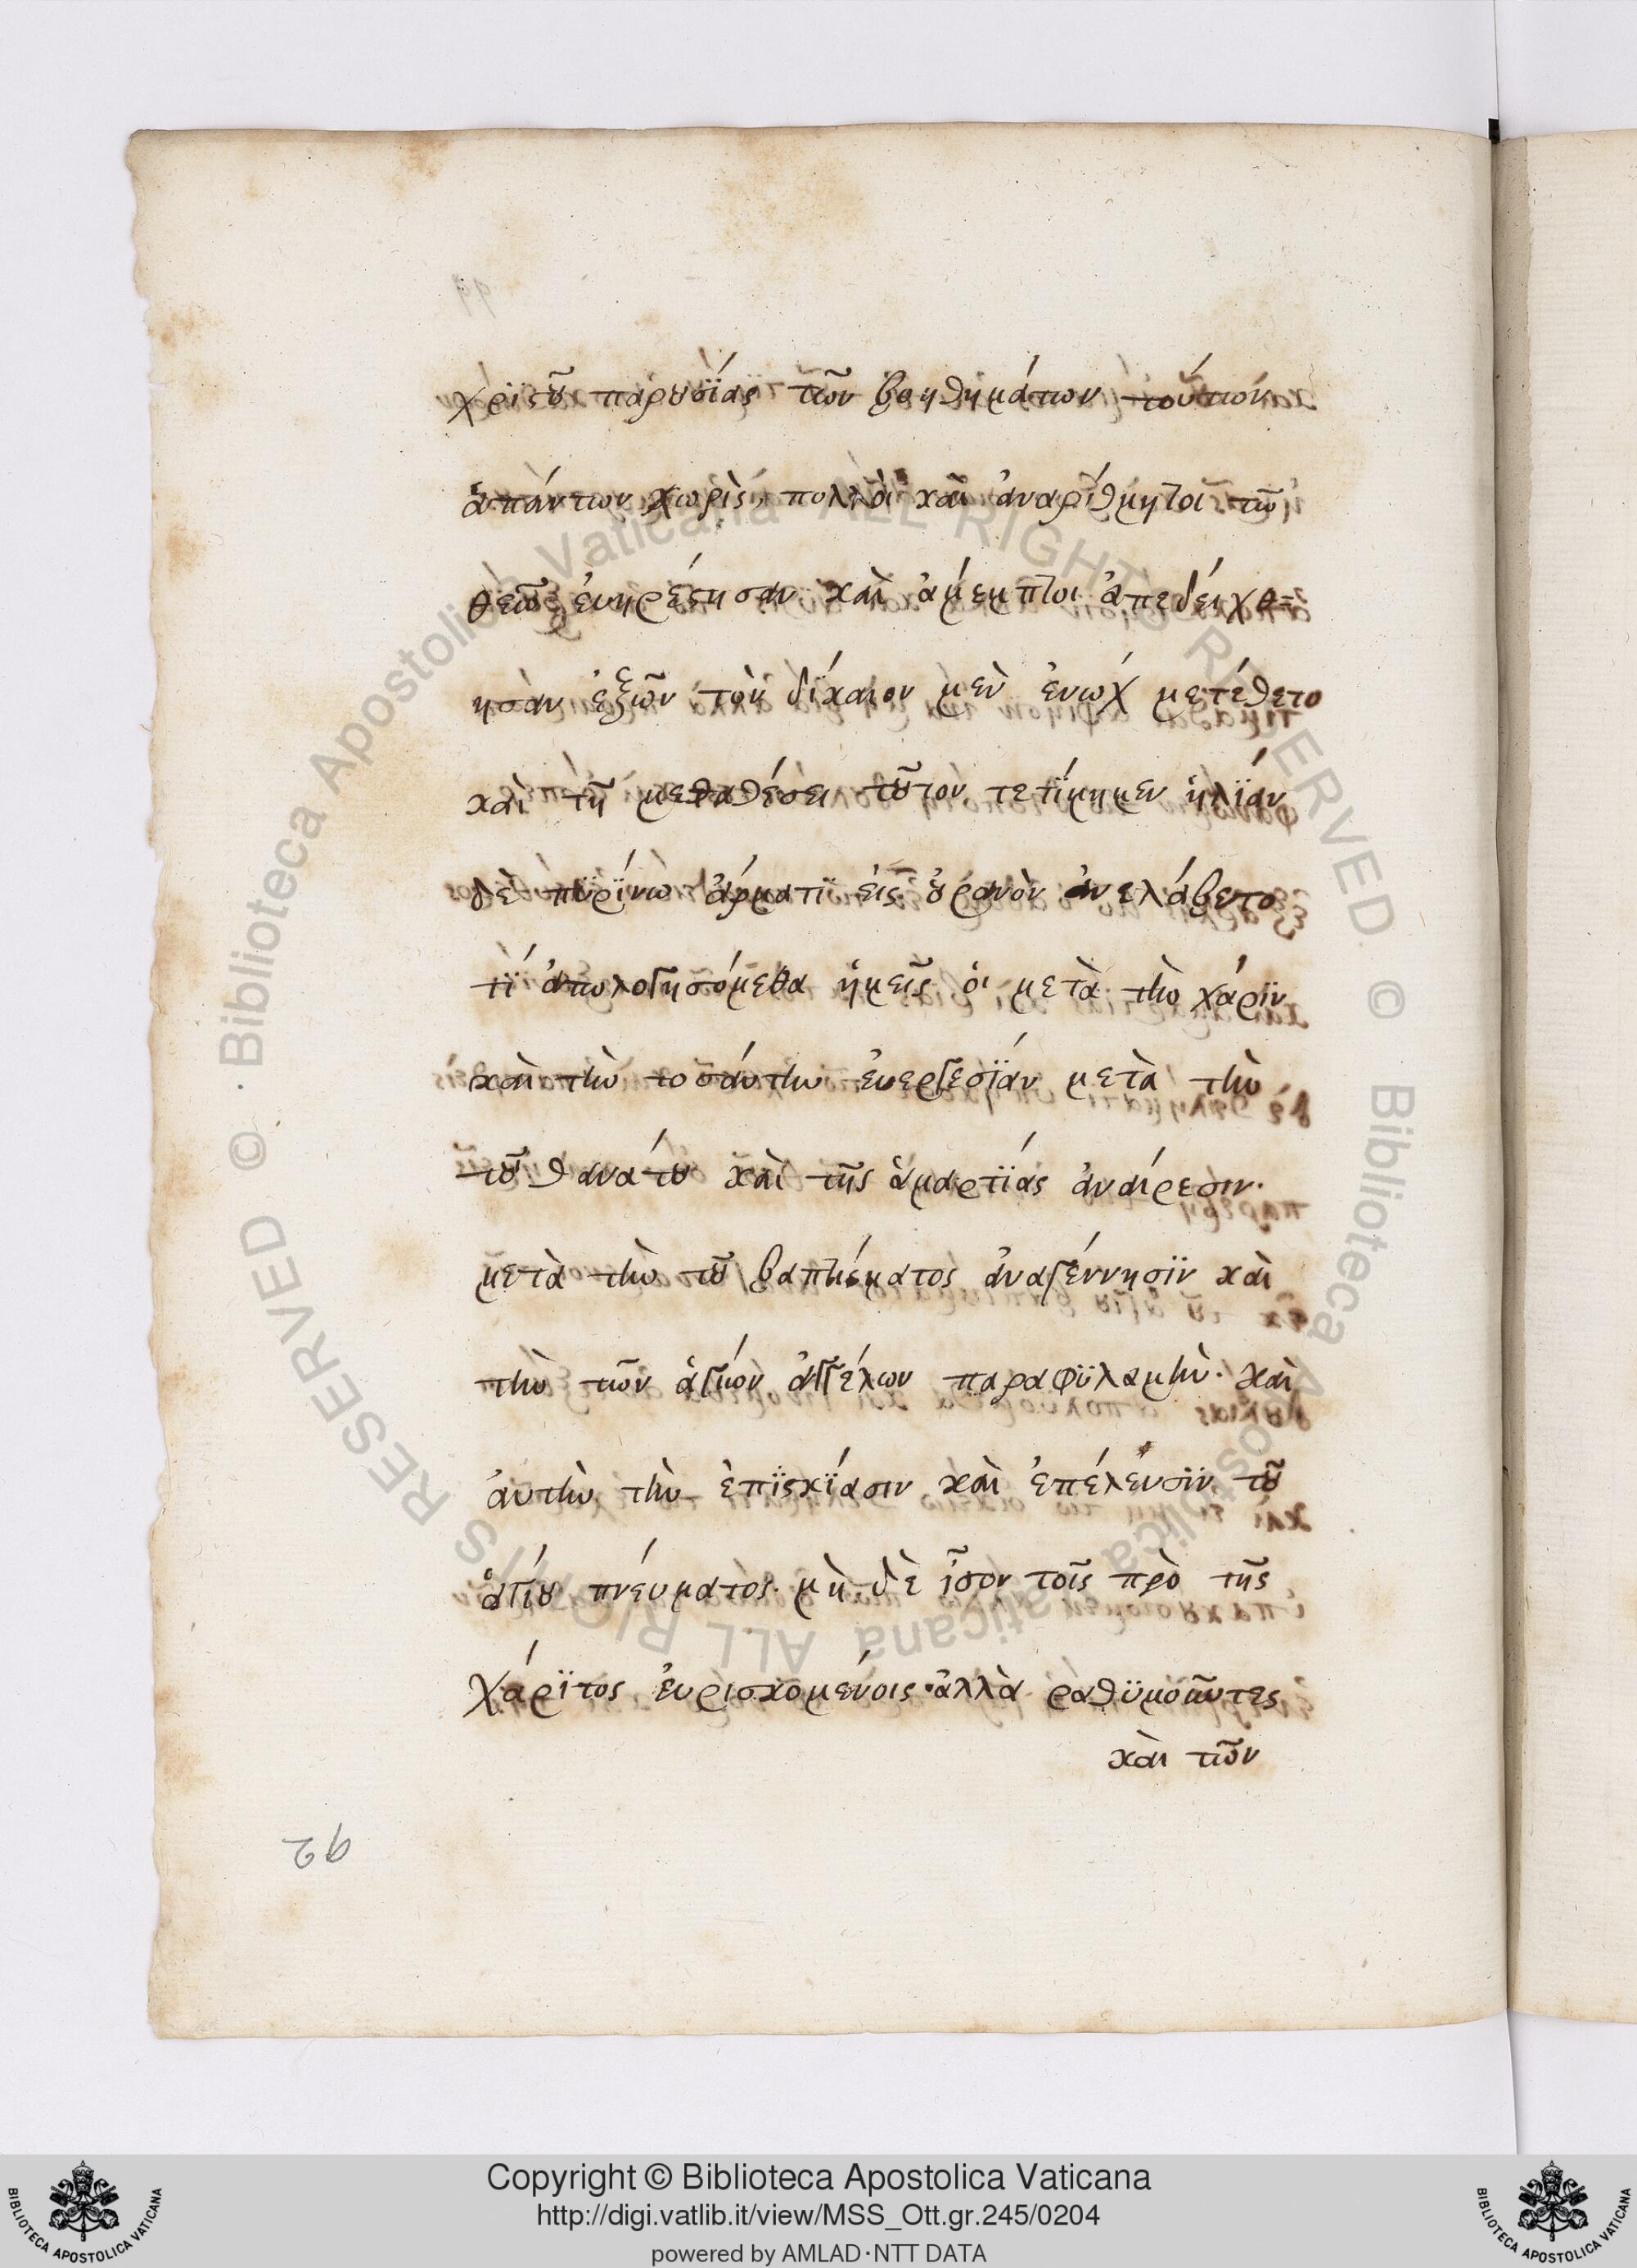 χρϊστοῦ παρουσΐας τῶν βοηθημάτων τούτων
ἁπάντων χωρὶς, πολλοὶ καὶ ἀναρίθμητοι τῶ
θεῶ ἐυηρέστησαν καὶ ἀμεμπτοι ἀπεδείχθ=
ησὰν ἐξῶν τὸν δΐκαιον μὲν ἐνωχ μετέθετο
καὶ τῆ μεθαθέσει τοῦτον τετΐμημεν ἡλΐαν
δὲ πϋρΐνω ἁρματϊ ἐις οὐρανὸν ἀνελάβετο
τΐ ἀπολογησόμεθα ἡμεῖς ὁι μετὰ τὴν χάρϊν
καὶ τὴν τοσάυτην ἐυεργεσΐαν μετὰ τὴν
τοῦ θανάτου καὶ τῆς ἁμαρτΐας ἀνάιρεσιν.
μετὰ τὴν τοῦ βαπτίσματος ἀναγέννησϊν καὶ
τὴν τῶν ἁγίον ἀγγέλων παραφϋλακὴν. καὶ
ἀυτὴν τὴν ἐπϊσκΐασιν καὶ ἐπέλευσϊν τοῦ
ἁγίου πνέυματος. μὴ δὲ ἶσον τοῖς πρὸ τῆς
χάρϊτος ἐυρισκομένοις. ἀλλὰ ραθϋμοῦντες
καὶ τῶν
92
Copyright © Biblioteca Apostolica Vaticana
http://digi.vatlib.it/view/MSS_Ott.gr.245/0204
powered by AMLAD·NTT DATA
BIBLIOTECA APOSTOLICA VATICANA
BIBLIOTECA APOSTOLICA VATICANA
© Biblioteca Apostolica Vaticana ALL RIGHTS RESERVED © Biblioteca Apostolica Vaticana ALL RIGHTS RESERVED